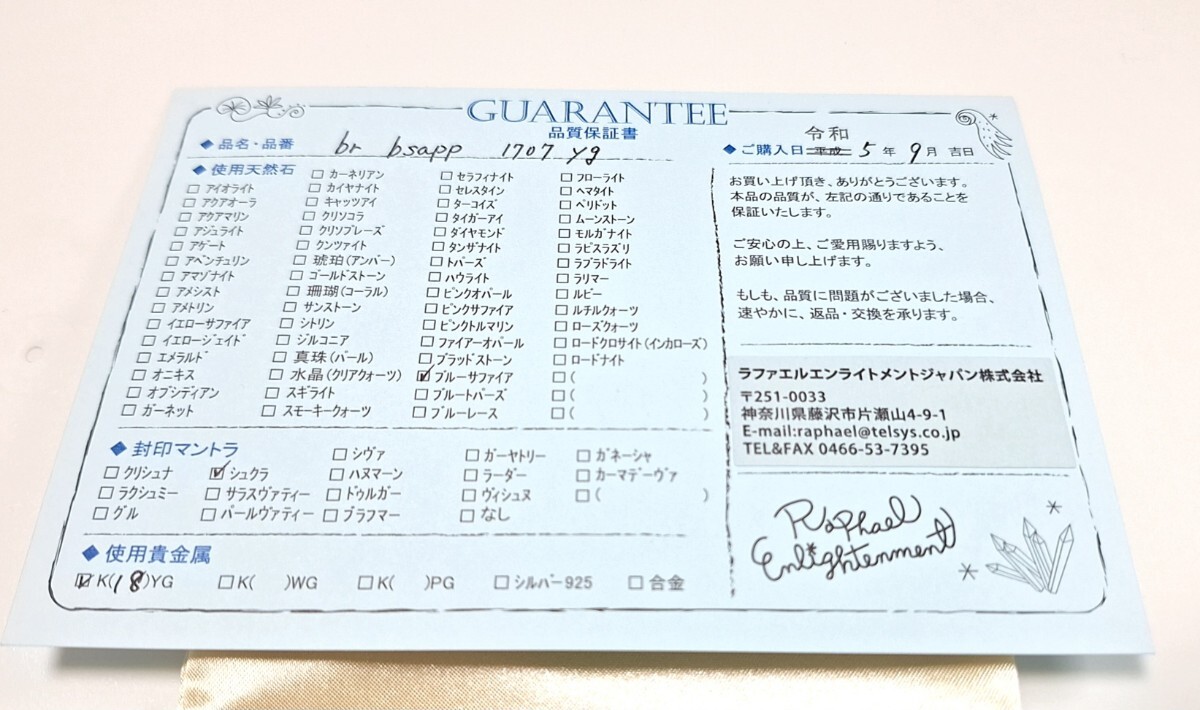 GUARANTEE
品質保証書
◆品名・品番 br bsapp 1707 yg
◆使用天然石
□アイオライト
□アクアオーラ
□アクアマリン
□アジュライト
□アゲート
□アベンチュリン
□アマゾナイト
□アメシスト
□アメトリン
□イエローサファイア
□イエロージェイド
□エメラルド
□オニキス
□オブシディアン
□ガーネット
□カーネリアン
□カイヤナイト
□キャッツアイ
□クリソコラ
□クリソプレーズ
□クンツァイト
□琥珀(アンバー)
□ゴールドストーン
□珊瑚(コーラル)
□サンストーン
□シトリン
□ジルコニア
□真珠(パール)
□水晶(クリアクォーツ)
□スギライト
□スモーキークォーツ
□セラフィナイト
□セレスタイン
□ターコイズ
□タイガーアイ
□ダイヤモンド
□タンザナイト
□トパーズ
□ハウライト
□ピンクオパール
□ピンクサファイア
□ピンクトルマリン
□ファイアーオパール
□ブラッドストーン
☑ブルーサファイア
□ブルートパーズ
□ブルーレース
□フローライト
□ヘマタイト
□ペリドット
□ムーンストーン
□モルガナイト
□ラピスラズリ
□ラブラドライト
□ラリマー
□ルビー
□ルチルクォーツ
□ローズクォーツ
□ロードクロサイト(インカローズ)
□ロードナイト
□( )
□( )
□( )
◆封印マントラ
□クリシュナ
□ラクシュミー
□グル
☑シュクラ
□サラスヴァティー
□パールヴァティー
□シヴァ
□ハヌマーン
□ドゥルガー
□ブラフマー
□ガーヤトリー
□ラーダー
□ヴィシュヌ
□なし
□ガネーシャ
□カーマデーヴァ
□( )
◆使用貴金属
☑K(18)YG □K( )WG □K( )PG □シルバー925 □合金
令和
◆ご購入日 平成 5年 9月 吉日
お買い上げ頂き、ありがとうございます。
本品の品質が、左記の通りであることを
保証いたします。
ご安心の上、ご愛用賜りますよう、
お願い申し上げます。
もしも、品質に問題がございました場合、
速やかに、返品・交換を承ります。
ラファエルエンライトメントジャパン株式会社
〒251-0033
神奈川県藤沢市片瀬山4-9-1
E-mail:raphael@telsys.co.jp
TEL&FAX 0466-53-7395
Raphael
Enlightenment